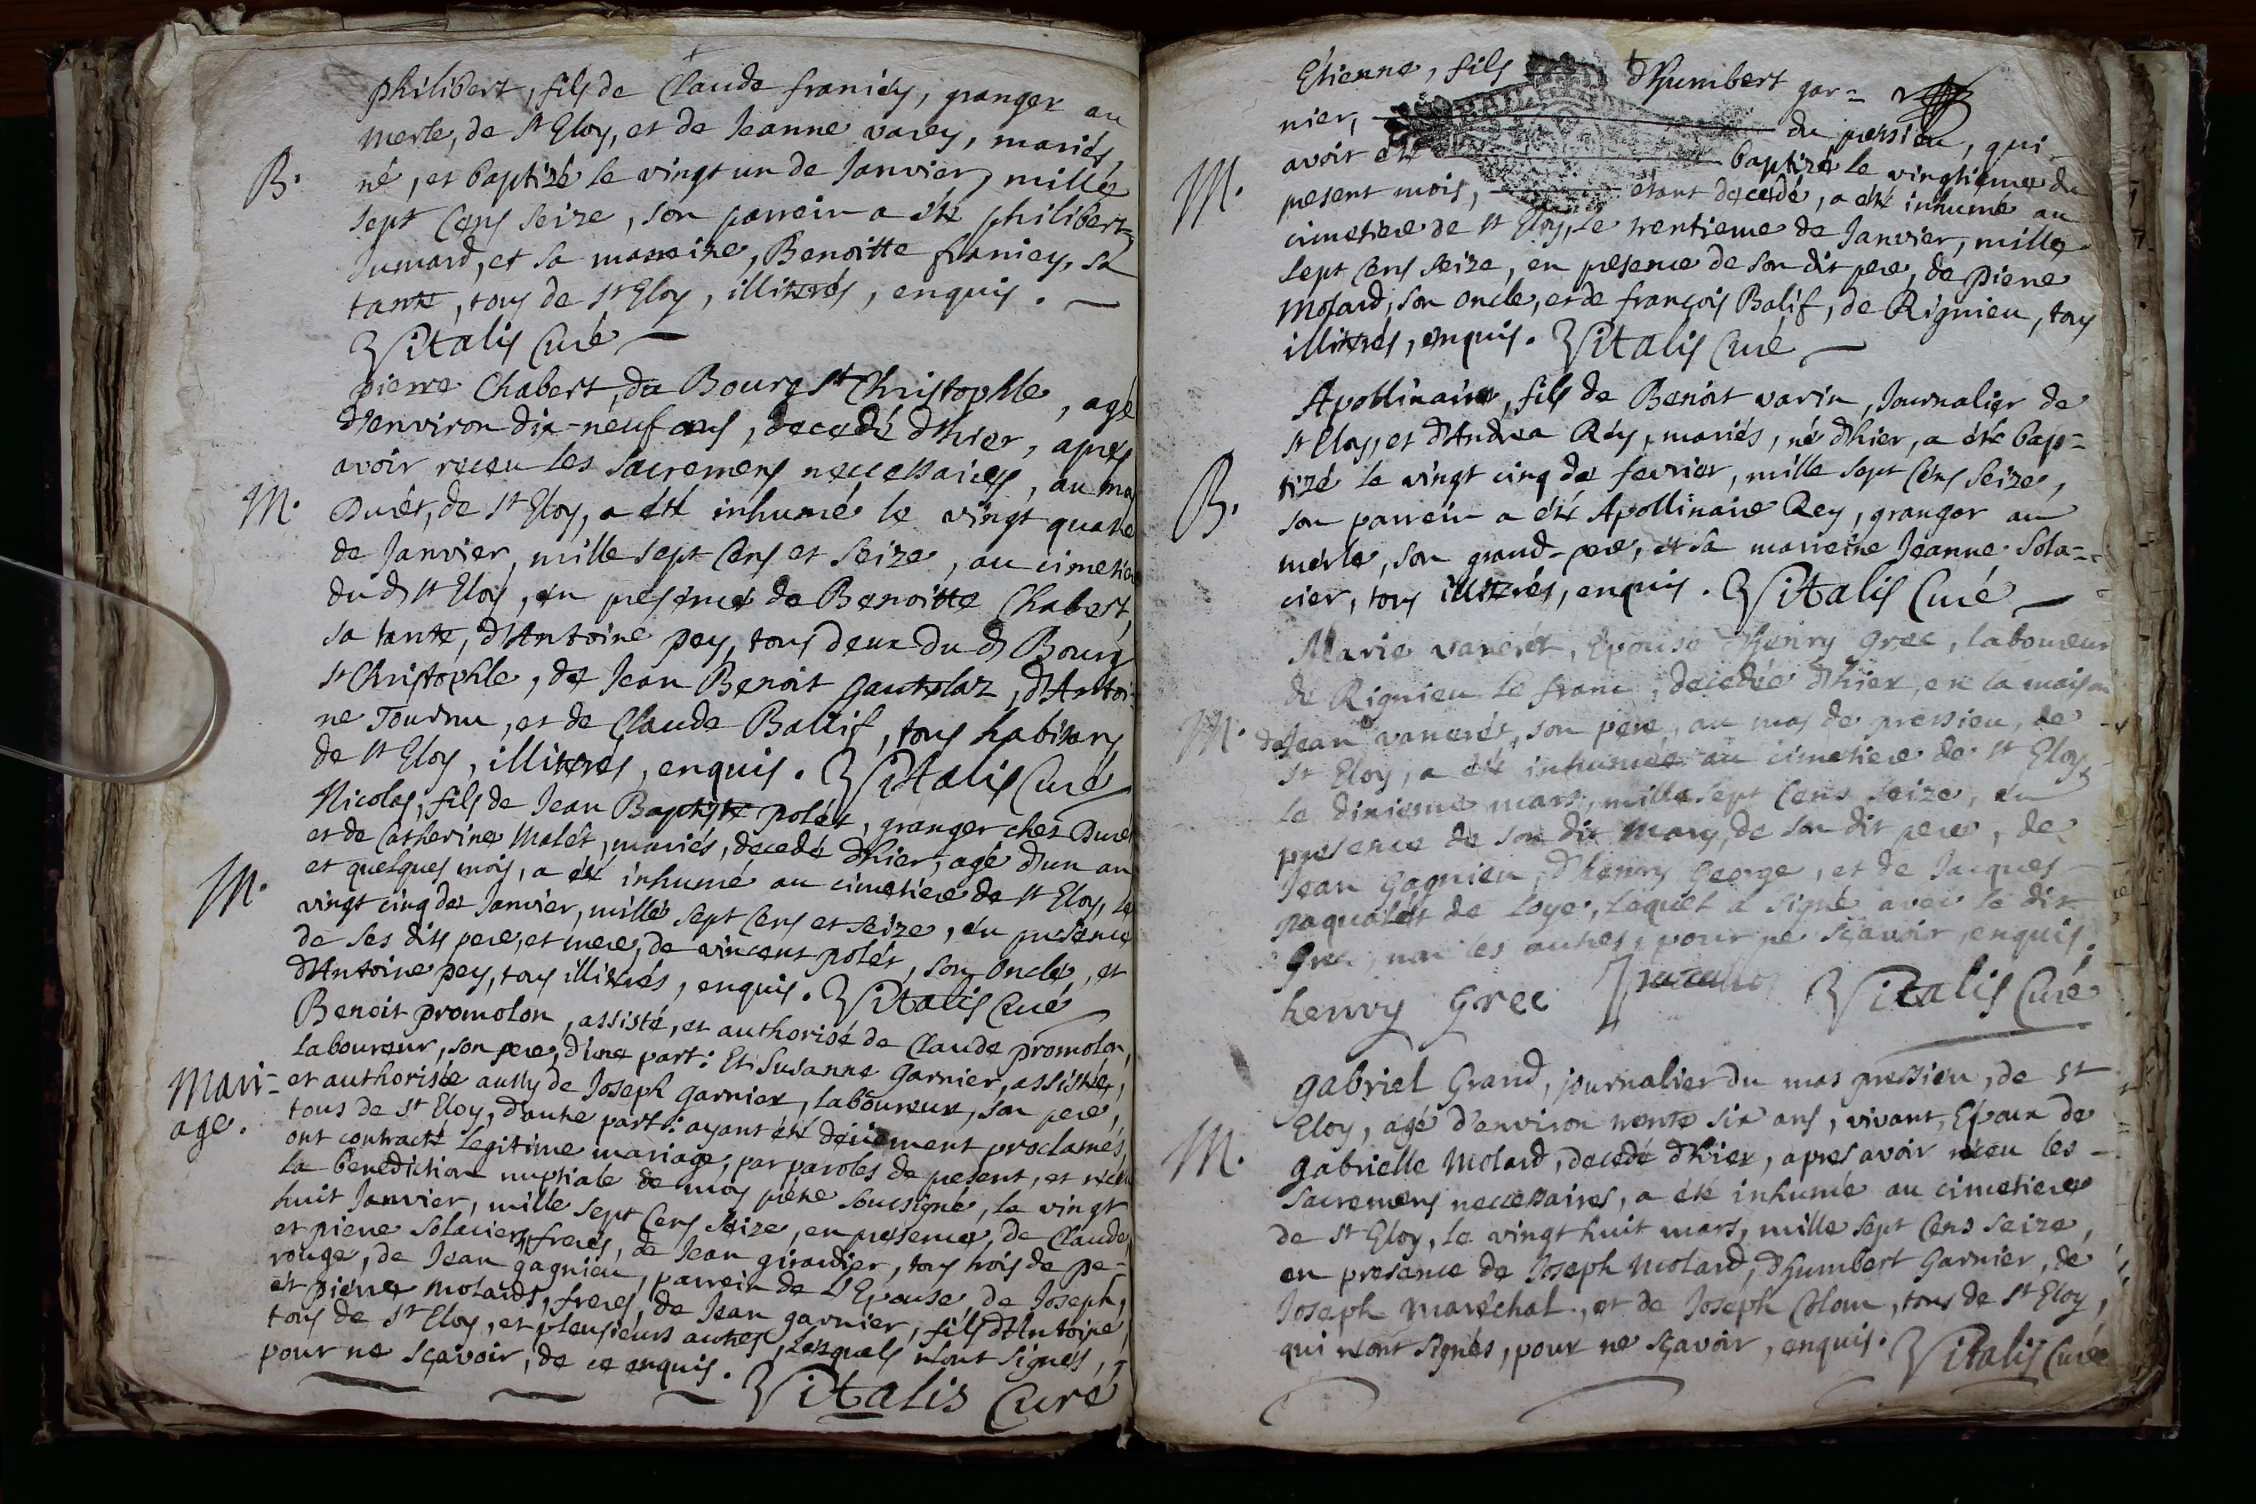 philibert, fils de Claude franiey, granger au
merle, de st Eloy, et de Jeanne varey, mariés,
B. né, et baptizé le vingt un de Janvier, mille
sept Cens seize, son parrein a été philibert
Jumard, et sa marreine, Benoitte franiey, sa
tante, tous de st Eloy, illiterés, enquis.
Vitalis Curé
pierre Chabert, du Bourg st Christophle, agé
d'environ dix-neuf ans, decedé d'hier, apres
avoir receu les sacremens necessaires, au mas
M. Durét, de st Eloy, a été inhumé le vingt quatre
de Janvier, mille sept Cens et seize, au cimetiere
du d st Eloy, en presence de Benoitte Chabert,
sa tante, d'Antoine pey, tous deux du d Bourg
st Christophle, de Jean Benoit gautolaz, d'Antoi-
ne Tournu, et de Claude Ballif, tous habitans
de st Eloy, illiterés, enquis. Vitalis Curé
Nicolas, fils de Jean Baptiste polét, granger chés Durét
et de Catherine Malét, mariés, decedé d'hier, agé d'un an
M. et quelques mois, a été inhumé au cimetiere de st Eloy, le
vingt cinq de Janvier, mille sept Cens et seize, en presence
de ses dits pere, et mere, de vincent polét, son Oncle, et
d'Antoine pey, tous illiterés, enquis. Vitalis Curé
Benoit promolon, assisté, et authorisé de Claude promolon,
laboureur, son pere, d'une part: Et Susanne garnier, assistée,
Mari- et authorisée aussy de Joseph garnier, laboureur, son pere,
age. tous de st Eloy, d'autre part: ayant été deüement proclamés,
ont contracté legitime mariage, par paroles de present, et receu
la benediction nuptiale de moy prêtre soussigné, le vingt
huit Janvier, mille sept Cens seize, en presence, de Claude
et pierre solaciers, freres, de Jean girardier, tous trois de pe-
rouge, de Jean gagnieu, parrein de l'Epouse, de Joseph,
et pierre molards, freres, de Jean garnier, fils d'Antoine,
tous de st Eloy, et plusieurs autres, lesquels n'ont signés,
pour ne sçavoir, de ce enquis.
Vitalis Curé
Etienne, fils d'humbert gar-
nier, du pressieu, qui
avoit été baptizé le vingtieme du
M. present mois, étant decedé, a été inhumé au
cimetiere de st Eloy, le trentieme de Janvier, mille
sept Cens seize, en presence de son dit pere, de pierre
molard, son Oncle, et de françois Balif, de Rignieu, tous
illiterés, enquis. Vitalis Curé
Apollinaire, fils de Benoit varin, Journalier de
st Eloy, et d'Andrea Réy, mariés, né d'hier, a été bap-
B. tizé le vingt cinq de fevrier, mille sept Cens seize,
son parrein a été Apollinaire Rey, granger au
merle, son grand-pere, et sa marreine Jeanne Sola-
cier, tous illiterés, enquis. Vitalis Curé
Marie vancrét, Epouse d'henry Grec, laboureur
de Rignieu le franc, decedée d'hier, en la maison
M. de Jean vancrét, son pere, au mas de pressieu, de
st Eloy, a été inhumée au cimetiere de st Eloy,
le dixieme mars, mille sept Cens seize, en
presence de son dit mary, de son dit pere, de
Jean gagnieu, d'henry George, et de Jacques
paqualét de Loye, lequel a signé avec le dit
Grec, non les autres, pour ne sçavoir, enquis.
henry Grec Vitalis Curé
gabriel Grand, journalier du mas pressieu, de st
Eloy, agé d'environ trente six ans, vivant, Epoux de
M. gabrielle Molard, decedé d'hier, apres avoir receu les
sacremens neccessaires, a été inhumé au cimetiere
de st Eloy, le vingt huit mars, mille sept Cens seize,
en presence de Joseph molard, d'humbert Garnier, de
Joseph Maréchal, et de Joseph Colom, tous de st Eloy,
qui n'ont signés, pour ne sçavoir, enquis. Vitalis Curé